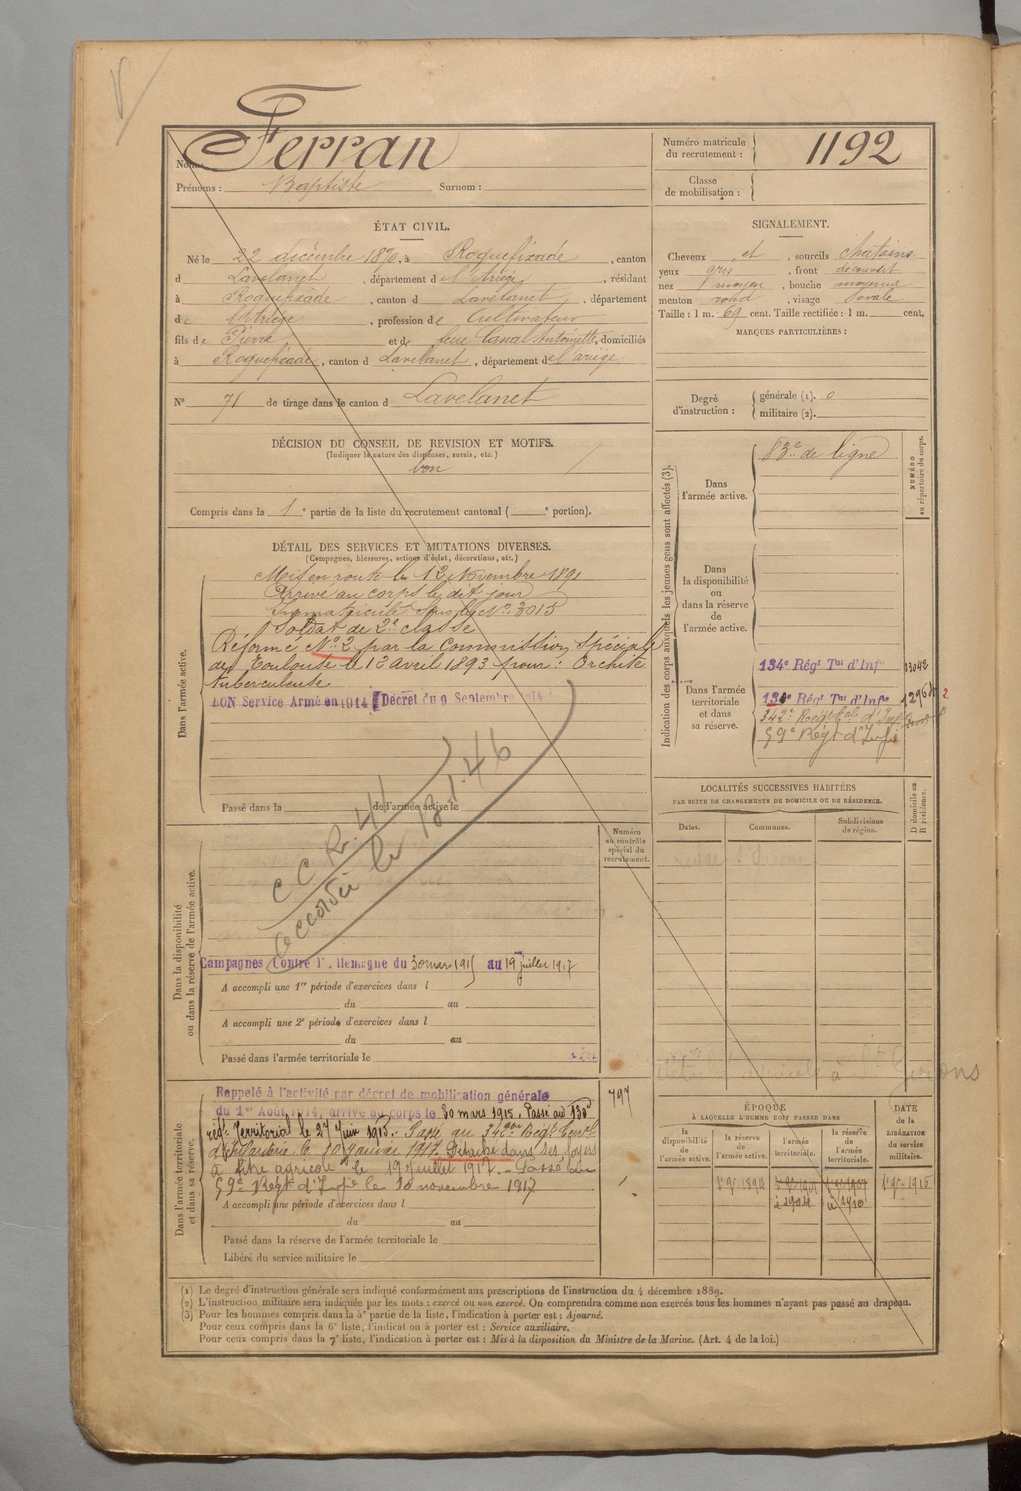 Nom : Ferran
Prénoms : Baptiste Surnom :
Numéro matricule
du recrutement : 1192
Classe
de mobilisation :
ÉTAT CIVIL.
Né le 22 décembre 1870, à Roquefixade, canton
d Lavelanet, département de l'Ariège, résidant
à Roquefixade, canton d Lavelanet, département
de l'Ariège, profession de Cultivateur
fils de Pierre et de feue Canal Antoinette, domiciliés
à Roquefixade, canton d Lavelanet, département de l'ariège
N° 71 de tirage dans le canton d Lavelanet
SIGNALEMENT.
Cheveux et, sourcils chatains
yeux gris, front découvert
nez moyen, bouche moyenne
menton rond, visage ovale
Taille : 1 m. 69 cent. Taille rectifiée : 1 m. cent.
MARQUES PARTICULIÈRES :
Degré
d'instruction :
générale (1). 0
militaire (2).
DÉCISION DU CONSEIL DE REVISION ET MOTIFS.
(Indiquer la nature des dispenses, sursis, etc.)
bon
Compris dans la 1e partie de la liste du recrutement cantonal ( e portion).
DÉTAIL DES SERVICES ET MUTATIONS DIVERSES.
(Campagnes, blessures, actions d'éclat, décorations, etc.)
Dans l'armée active.
Mis en route le 12 Novembre 1891
Arrivé au corps le dit jour
Immatriculé sous le N° 3015
Soldat de 2e classe
Réformé N° 2 par la Commission Spéciale
de Toulouse le 12 avril 1893 pour : Orchite
tuberculeuse
BON Service Armé en 1914 Décret du 9 Septembre 1914
Passé dans la de l'armée active le
C C R. 41
accordée le 12.1.46
Indication des corps auxquels les jeunes gens sont affectés (3).
NUMÉRO
au répertoire du corps.
Dans
l'armée active.
83e de ligne
Dans
la disponibilité
ou
dans la réserve
de
l'armée active.
Dans l'armée
territoriale
et dans
sa réserve.
134e Régt Tal d'Infie
130e Régt Tal d'Infie
342e Régt d'Inf
59e Régt d'Infie
LOCALITÉS SUCCESSIVES HABITÉES
PAR SUITE DE CHANGEMENTS DE DOMICILE OU DE RÉSIDENCE.
Dates. Communes. Subdivisions
de région.
D domicile ou
R résidence.
Numéro
au contrôle
spécial du
recrutement.
Dans la disponibilité
ou dans la réserve de l'armée active.
Campagnes Contre l'Allemagne du 30 mars 1915 au 19 juillet 1917
A accompli une 1re période d'exercices dans l
du au
A accompli une 2e période d'exercices dans l
du au
Passé dans l'armée territoriale le
Dans l'armée territoriale
et dans sa réserve.
Rappelé à l'activité par décret de mobilisation générale
du 1er Août 1914, arrivé au corps le 30 mars 1915. Passé au 130e
régt Territorial le 27 Juin 1915. Passé au 342e Régt
d'Infanterie le 10 Janvier 1917. Détaché dans ses foyers
à titre agricole le 19 Juillet 1917. Passé au
59e Régt d'Infie le 10 novembre 1917
797
A accompli une période d'exercices dans l
du au
Passé dans la réserve de l'armée territoriale le
Libéré du service militaire le
ÉPOQUE
À LAQUELLE L'HOMME DOIT PASSER DANS
DATE
DE LA
LIBÉRATION
du service
militaire.
la
disponibilité
de l'armée
active.
la réserve
de
l'armée active.
l'armée
territoriale.
la réserve
de
l'armée
territoriale.
(1) Le degré d'instruction générale sera indiqué conformément aux prescriptions de l'instruction du 4 décembre 1889.
(2) L'instruction militaire sera indiquée par les mots : exercé ou non exercé. On comprendra comme non exercés tous les hommes n'ayant pas passé au drapeau.
(3) Pour les hommes compris dans la 5e partie de la liste, l'indication à porter est : Ajourné.
Pour ceux compris dans la 6e liste, l'indicat on à porter est : Service auxiliaire.
Pour ceux compris dans la 7e liste, l'indication à porter est : Mis à la disposition du Ministre de la Marine. (Art. 4 de la loi.)